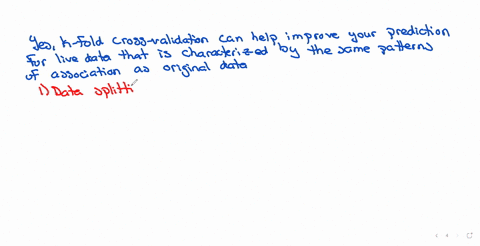 Yes, k-fold cross-validation can help improve your prediction
for live data that is characterized by the same patterns
of association as original data
1) Data splitti